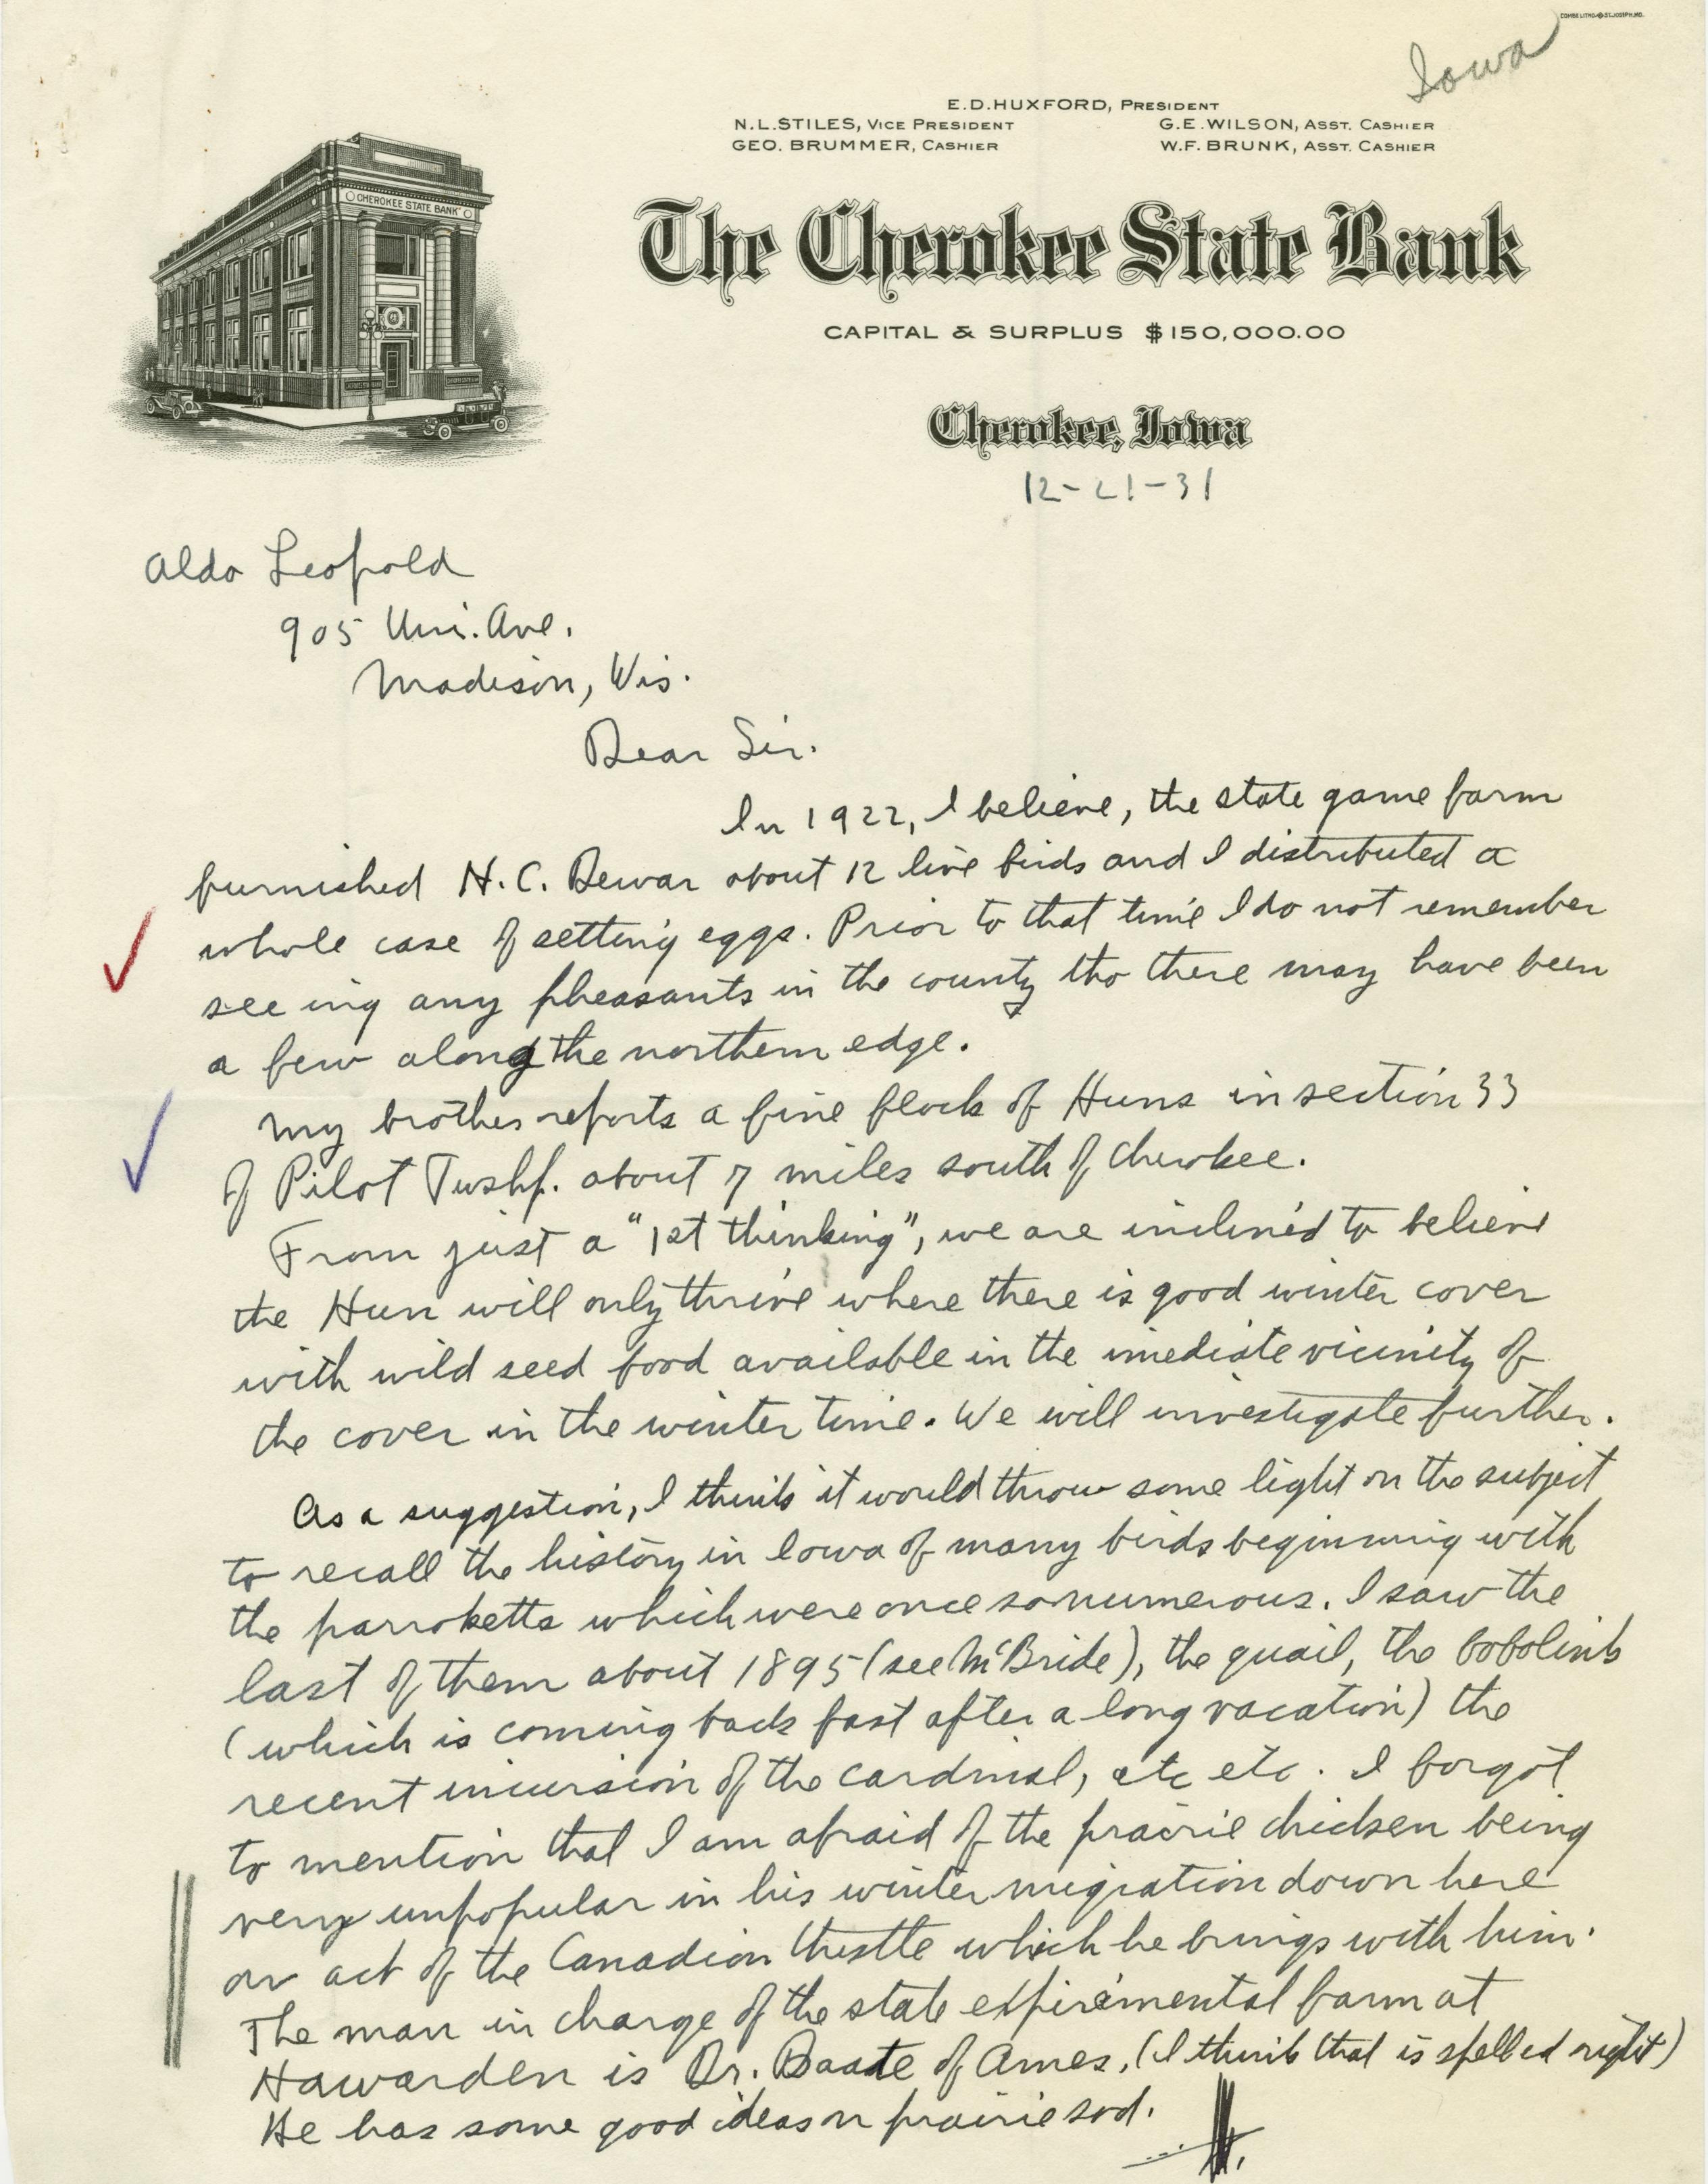 COMBE LITHO ST. JOSEPH, MO.
Iowa
E.D. HUXFORD, PRESIDENT
N.L. STILES, VICE PRESIDENT G.E. WILSON, ASST. CASHIER
GEO. BRUMMER, CASHIER W.F. BRUNK, ASST. CASHIER
CHEROKEE STATE BANK
The Cherokee State Bank
CAPITAL & SURPLUS $150,000.00
Cherokee, Iowa
12-21-31
Aldo Leopold
905 Uni. Ave.
Madison, Wis.
Dear Sir.
In 1922, I believe, the state game farm
furnished N.C. Dewar about 12 live birds and I distributed a
whole case of setting eggs. Prior to that time I do not remember
seeing any pheasants in the county tho there may have been
a few along the northern edge.
My brother reports a fine flock of Huns in section 33
of Pilot Twshp. about 7 miles south of Cherokee.
From just a "1st thinking", we are inclined to believe
the Hun will only thrive where there is good winter cover
with wild seed food available in the imediate vicinity of
the cover in the winter time. We will investigate further.
As a suggestion, I think it would throw some light on the subject
to recall the history in Iowa of many birds beginning with
the parroketts which were once so numerous. I saw the
last of them about 1895 (see McBride), the quail, the bobolink
(which is coming back fast after a long vacation) the
recent incursion of the cardinal, etc etc. I forgot
to mention that I am afraid of the prairie chicken being
very unpopular in his winter migration down here
on act of the Canadian thistle which he brings with him.
The man in charge of the state expiremental farm at
Hawarden is Dr. Baate of Ames. (I think that is spelled right)
He has some good ideas on prairie sod.